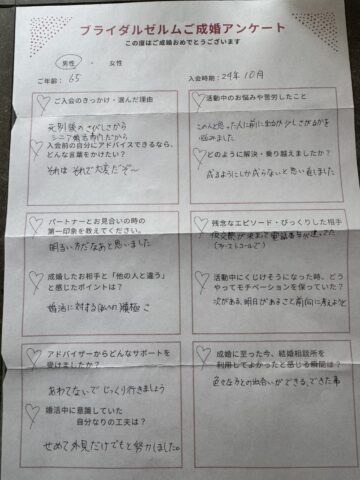 ブライダルゼルムご成婚アンケート
この度はご成婚おめでとうございます
男性 ・ 女性
ご年齢： 65
入会時期： 24年 10月
ご入会のきっかけ・選んだ理由
死別後のさびしさから
シニア婚活専門だから
入会前の自分にアドバイスできるなら、
どんな言葉をかけたい？
それは それで大変だぞ～
活動中のお悩みや苦労したこと
この人と思った人に前に
悩みました
どのように解決・乗り越えましたか？
成るようにしか成らないと思い直しました
パートナーとお見合いの時の
第一印象を教えてください。
明るい方だなあと思いました
成婚したお相手と「他の人と違う」
と感じたポイントは？
婚活に対する 積極さ
残念なエピソード・びっくりした相手
仮交際が決まって電話番号が違ってた
(ファーストコールで)
活動中にくじけそうになった時、どう
やってモチベーションを保っていた？
次がある、明日があると前向に考えよう
アドバイザーからどんなサポートを
受けましたか？
あわてないで じっくり行きましょう
婚活中に意識していた
自分なりの工夫は？
せめて外見だけでもと努力しました。
成婚に至った今、結婚相談所を
利用してよかったと感じる瞬間は？
色々な方との出会いができる、できた事